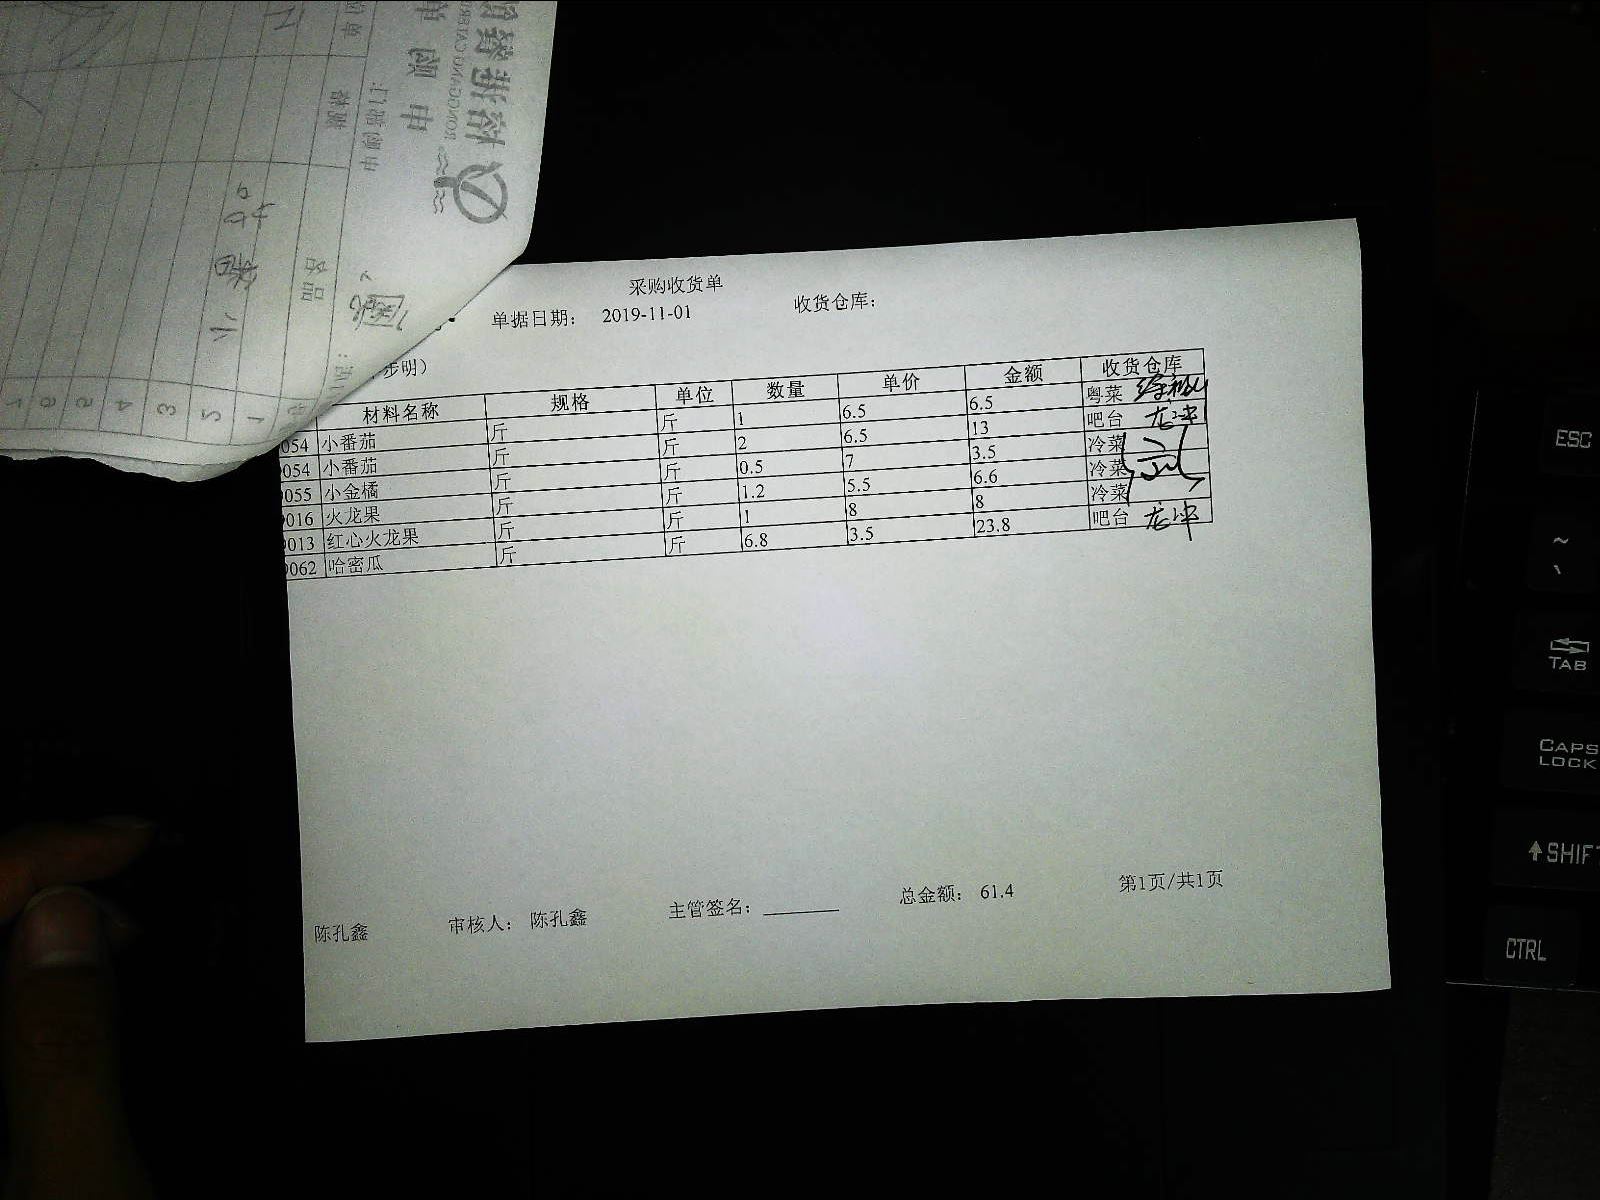 采购收货单
单据日期： 2019-11-01 收货仓库：
步明）
材料名称 规格 单位 数量 单价 金额 收货仓库
054 小番茄 斤 斤 1 6.5 6.5 粤菜
054 小番茄 斤 斤 2 6.5 13 吧台 龙冲
055 小金橘 斤 斤 0.5 7 3.5 冷菜
016 火龙果 斤 斤 1.2 5.5 6.6 冷菜
013 红心火龙果 斤 斤 1 8 8 冷菜
062 哈密瓜 斤 斤 6.8 3.5 23.8 吧台 龙冲
陈孔鑫 审核人： 陈孔鑫 主管签名： 总金额： 61.4 第1页/共1页
申购部门：
品名 规格
1
2
3
4
ESC
~
TAB
CAPS
LOCK
SHIFT
CTRL